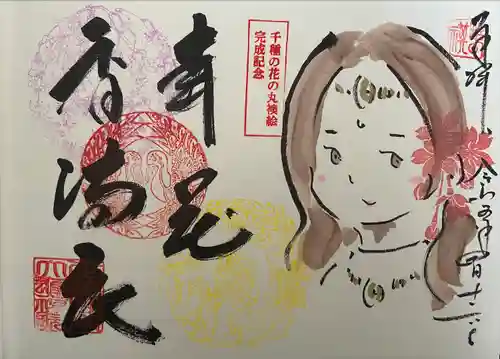 奉拝 令和五年四月十一日
千種の花の丸襖絵
完成記念
弄花
香満衣